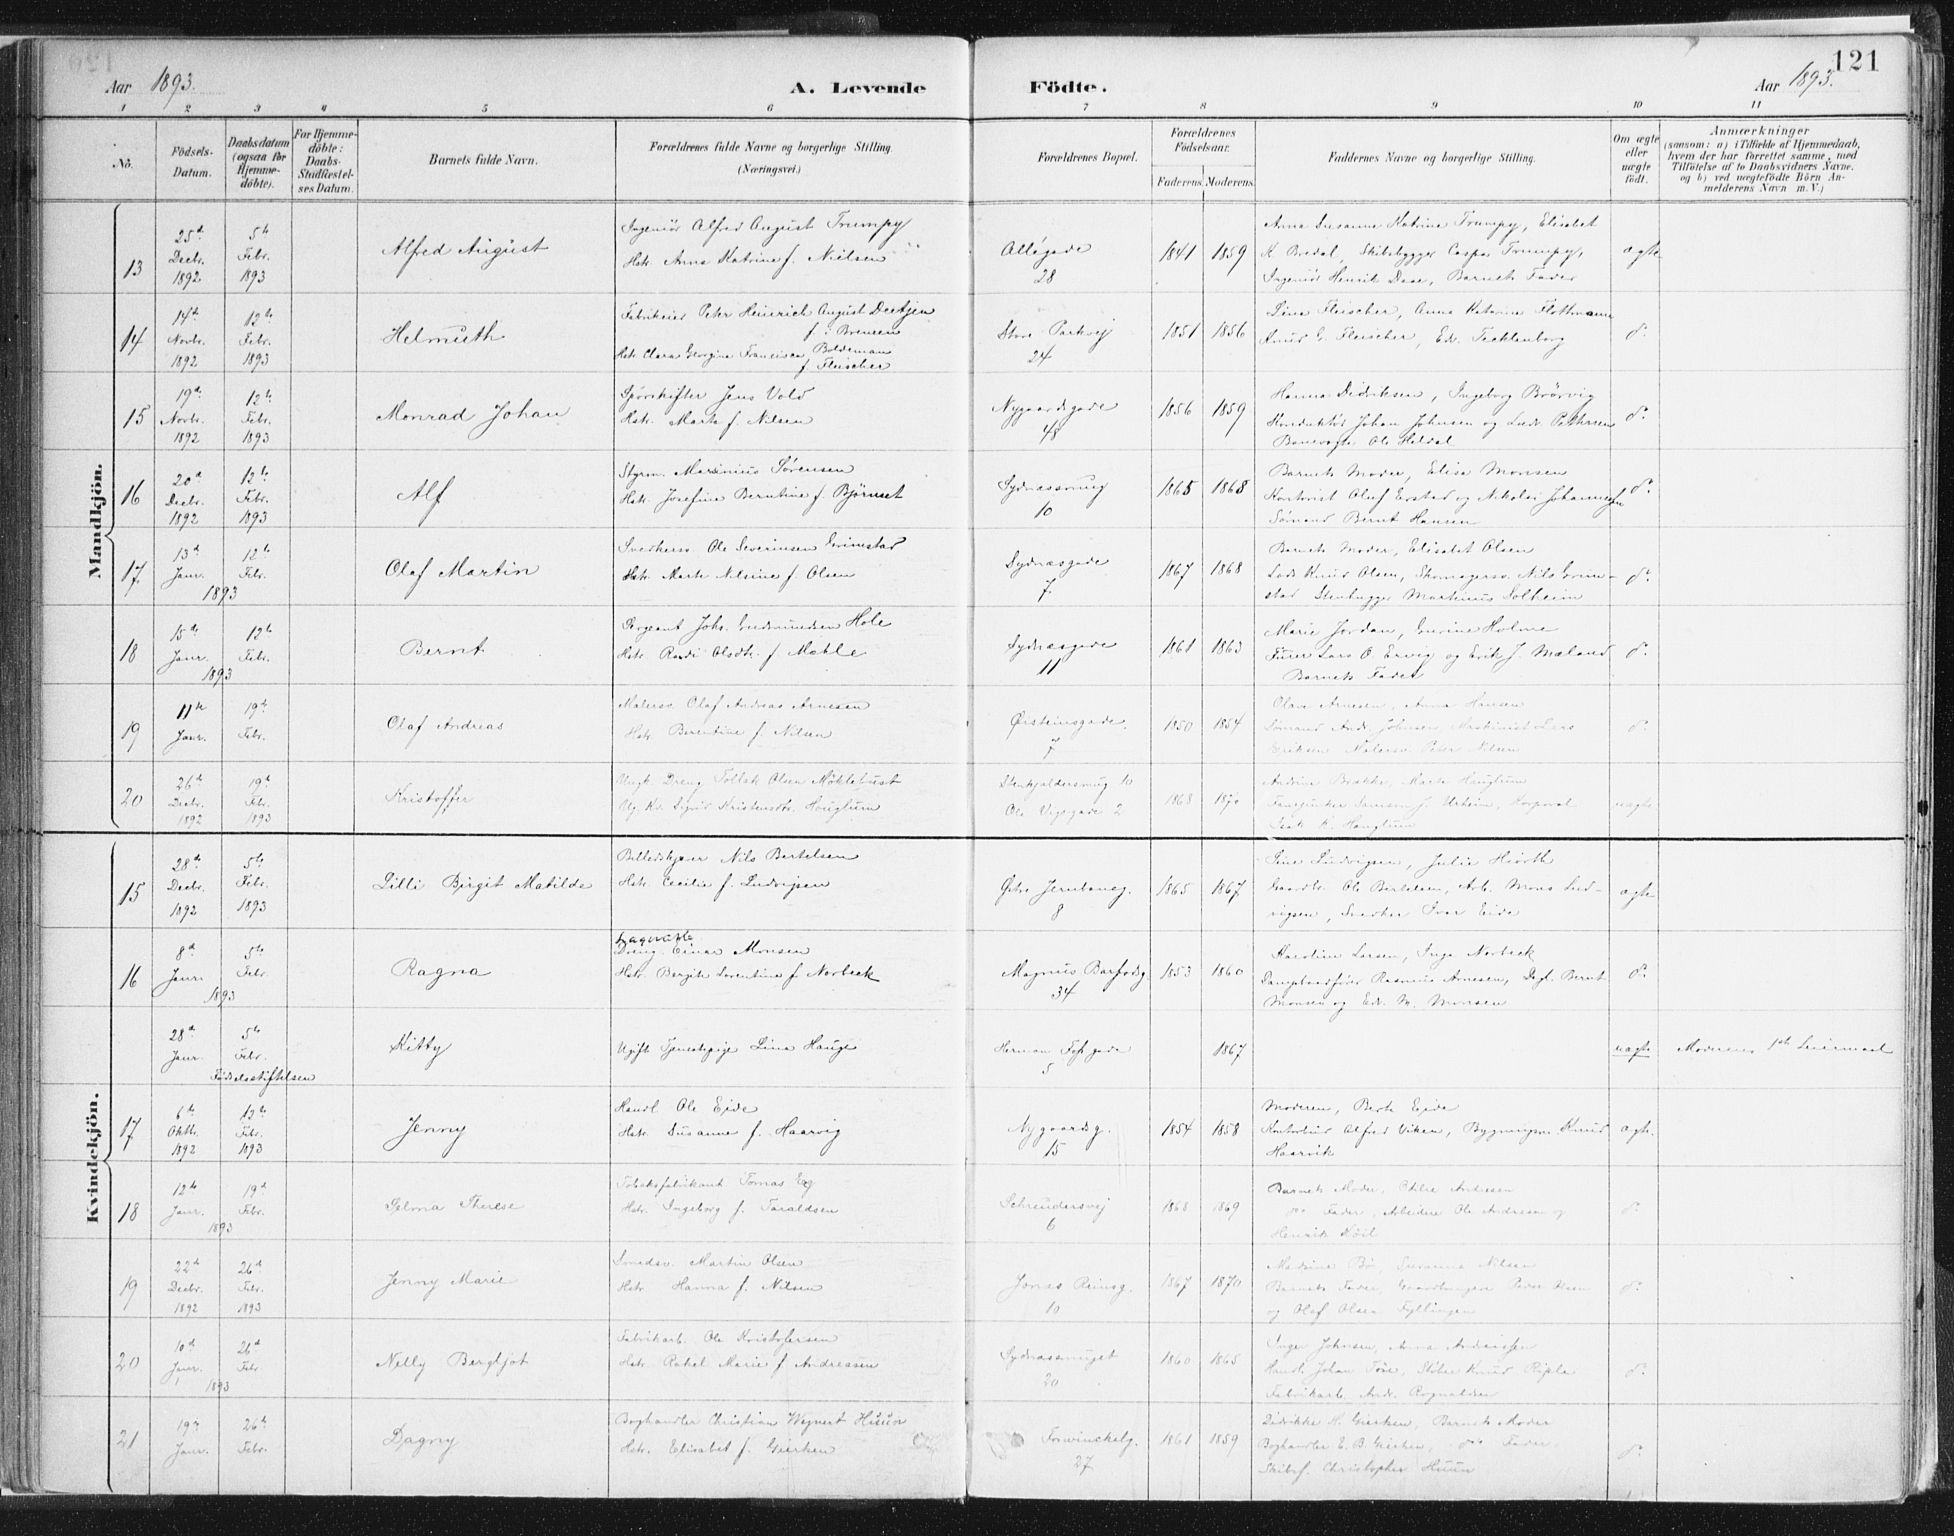 121
Aar 1893.
A. Levende
Födte.
Aar 1893.
1 2 3 4 5 6 7 8 9 10 11
No.
Födsels-
Datum.
Daabsdatum
(ogsaa for
Hjemme-
döbte).
For Hjemme-
döbte:
Daabs-
Stadfæstel-
ses Datum.
Barnets fulde Navn.
Forældrenes fulde Navne og borgerlige Stilling.
(Næringsvei.)
Forældrenes Bopæl.
Forældrenes
Födselsaar.
Faderens. Moderens.
Faddernes Navne og borgerlige Stilling.
Om ægte
eller
uægte
födt.
Anmærkninger
(saasom: a) i Tilfælde af Hjemmedaab,
hvem der har forrettet samme, med
Tilföielse af to Daabsvidners Navne.
og b) ved uægtefödte Börn An-
melderens Navn m. V.)
Mandkjön.
13
25de
Decbr.
1892
5te
Febr.
1893
Alfred August
Ingeniör Alfred August Trumpy
Hstr. Anna Katrine f. Nielsen
Allégade
28
1841 1859
Anna Susanne Katrine Trumpy, Elisabet
K. Bredal, Skibsbygger Caspar Trumpy,
Ingeniör Henrik Dase, Barnets Fader
ægte
14
14de
Novbr.
1892
12te
Febr.
1893
Helmuth
Fabrikeier Peter Heinrich August Deetjen
f. i Bremen
Hstr. Clara Georgine Francisca Boldemann
f. Fleischer
Store Parkvej
24
1851 1856
Lina Fleischer, Anna Katarina Flottmann
Knud G. Fleischer, Edv. Tecklenborg
do
15
19de
Novbr.
1892
12te
Febr.
1893
Monrad Johan
Sporskifter Jens Vold
Hstr. Marte f. Nilsen
Nygaardsgade
48
1856 1859
Hanna Didriksen, Ingeborg Brørvig
Konduktör Johan Johnsen og Ludv. Pettersen
Banevogter Ole Heldal
do
16
20de
Decbr.
1892
12te
Febr.
1893
Alf
Styrm. Marsinius Sørensen
Hstr. Josefine Berntine f. Björnset
Sydnæssmug
10
1865 1868
Barnets Moder, Elisa Monsen
Kontorist Olaf Erstad og Nikolai Johannessen
Sømand Bernt Hansen
do
17
13de
Janr.
1893
12te
Febr.
Olaf Martin
Snedkersv. Ole Severinsen Grimstad
Hstr. Marte Nilsine f. Olsen
Sydnæsgade
7
1867 1868
Barnets Moder, Elisabet Olsen
Lods Knud Olsen, Skomagersv. Nils Grim-
stad Stenhugger Martinus Solheim
do
18
15de
Janr.
1893
12te
Febr.
Bernt
Sergeant Johs. Gudmundsen Hole
Hstr. Randi Olsdtr. f. Mæhle
Sydnæsgade
11
1861 1863
Marie Jordan, Gurine Holme
Furer Lars O. Ervig og Erik J. Mæland
Barnets Fader
do
19
11te
Janr.
19de
Febr.
Olaf Andreas
Malersv. Olaf Andreas Arnesen
Hstr. Berentine f. Nilsen
Øisteinsgade
7
1850 1854
Olave Arnesen, Anna Hansen
Sømand Andr. Johnsen, Maskinist Lars
Eriksen Malersv. Peter Nilsen
do
20
26de
Decbr.
1892
19de
Febr.
1893
Kristoffer
Ungk. Dreng Tollak Olsen Møklebust
Ug. Kv. Signe Kristensdtr. Hauglum
Stenkjeldersmug 10
Ole Vigsgade 2
1868 1870
Andrine Brække, Marte Hauglum
Fanejunker Samson J. Urheim, Korporal
Isak K. Hauglum
uægte
Kvindekjön.
15
28de
Decbr.
1892
5te
Febr.
1893
Lilli Birgit Matilde
Billedskjærer Nils Bertelsen
Hstr. Cecilie f. Ludvigsen
Østre Jernbaneg.
8
1865 1867
Line Ludvigsen, Julie Hiorth
Gaardbr. Ole Bertelsen, Arb. Mons Lud-
vigsen, Snedker Ivar Eide
ægte
16
8de
Janr.
1893
5te
Febr.
Ragna
Dreng Einar Monsen
Hstr. Bergite Lorentine f. Norbeck
Magnus Barfodsg.
34
1853 1860
Karoline Larsen, Inga Norbeck
Dampbaadfører Rasmus Arnesen, Dgl. Bernt
Monsen og Edv. M. Monsen
do
28de
Janr.
5te
Febr.
Fødselsstiftelsen
Kitty
Ugift Tjenestepige Lina Hauge
Herman Fossgade
5
1867
uægte
Moderens 1ste Leiermaal
17
6te
Oktbr.
1892
12te
Febr.
1893
Jenny
Handl. Ole Eide
Hstr. Susanne f. Haarvig
Nygaardsg.
15
1854 1858
Moderen, Berte Eide
Kontorist Alfred Viken, Bygningsm. Knud
Haarvik
ægte.
18
12te
Janr.
1893
19de
Febr.
Selma Therese
Tobaksfabrikant Tomas Eg
Hstr. Ingeborg f. Taraldsen
Schreudersvej
6
1868 1869
Barnets Moder, Otilie Andresen
do Fader, Arbeidere Ole Andresen og
Henrik Köil
do
19
22de
Decbr.
1892
26de
Febr.
1893
Jenny Marie
Smedsv. Martin Olsen
Hstr. Hanna f. Nilsen
Jonas Reinsg.
10
1867 1870
Madsine Bö, Susanna Nilsen
Barnets Fader, Gaardbrugere Peder Olsen
og Olaf Olsen Fyllingen
do
20
10de
Janr.
1893
26de
Febr.
Nelly Bergljot
Fabrikarb. Ole Kristofersen
Hstr. Rakel Marie f. Andreassen
Sydnæssmuget
20
1860 1865
Inger Johnsen, Anna Andreassen
Handl. Johan Töse, Støber Knud Ripla
Fabrikarb. Andr. Rognaldsen
do
21
19de
Janr.
26de
Febr.
Dagny
Boghandler Christian Wegnert Huun
Hstr. Elisabet f. Gierken
Forwinckelg.
27
1861 1859
Didrikke N. Gierken, Barnets Moder
Boghandler E. B. Gierken, do Fader,
Skibsf. Christopher Huun
do